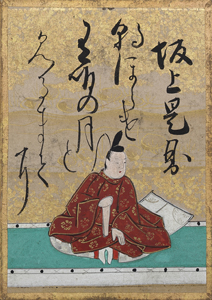 坂上是則
朝ほらけ
有明の月と
みるまてに